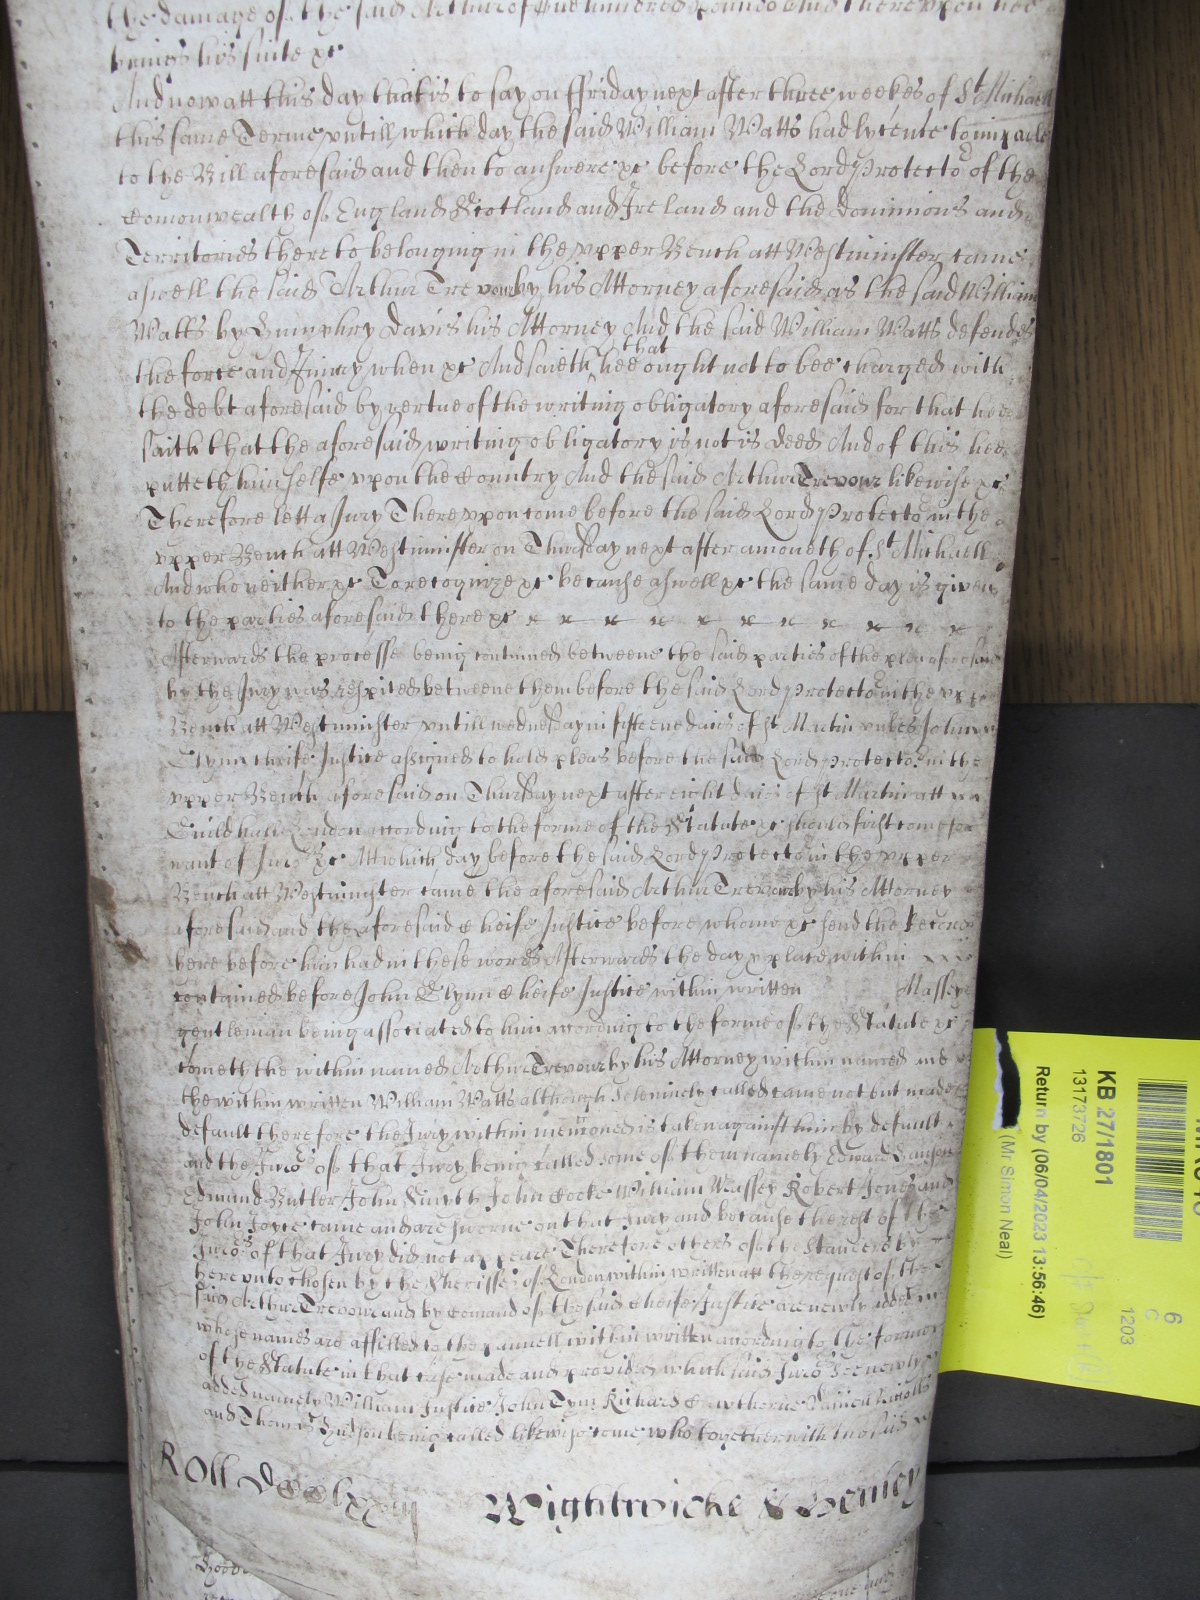 the damage of the said Arthur of one hundred pounds And thereupon hee
brings his suite &c
And now att this day that is to say on ffriday next after three weekes of St Michaell
this same Terme untill which day the said William Watts had lycence to imparle
to the Bill aforesaid and then to answere &c before the Lord Protector of the
Comonwealth of England Scotland and Ireland and the Dominions and
Territories thereto belonging in the upper Bench att Westminster came
aswell the said Arthur Trevour by his Attorney aforesaid as the said William
Watts by Humphry Davis his Attorney And the said William Watts defends
the force and Iniury when &c And saieth that hee ought not to bee charged with
the debt aforesaid by vertue of the writing obligatory aforesaid for that hee
saith that the aforesaid writing obligatory is not is deed And of this hee
putteth himselfe upon the Country And the said Arthur Trevour likewise &c
Therefore lett a Jury Thereupon come before the said Lord Protector in the
upper Bench att Westminster on Thursday next after a moneth of St Michaell
And who neither &c To recognize &c because aswell &c the same day is given
to the parties aforesaid there &c
Afterwards the processe being continued betweene the said parties of the plea aforesaid
by the Jury was respited betweene them before the said Lord Protector in the upper
Bench att Westminster untill wednesday in fifteene daies of St Martin unles John
Glynn cheife Justice assigned to hold pleas before the said Lord Protector in the
upper Bench aforesaid on Thursday next after eight daies of St Martin att
Guildhall London according to the forme of the Statute &c should first come for
want of Jurors &c Att which day before the said Lord Protector in the upper
Bench att Westminster came the aforesaid Arthur Trevour by his Attorney
aforesaid and the aforesaid Cheife Justice before whome &c send the Record
here before him had in these words Afterwards the day & place within
contained before John Glynn Cheife Justice within written Massey
gentleman being associated to him according to the forme of the Statute &c
cometh the within named Arthur Trevour by his Attorney within named and
the within written William Watts although solemnely called came not but made
default therefore the Jury within mencioned is taken against him by default
and the Jurors of that Jury being called some of them namely Edward
Edmund Butler John Smyth John Cooke William Massey Robert Jones and
John Joyce came and are sworne on that Jury and because the rest of the
Jurors of that Jury did not appeare Therefore others of the Standers by
hereunto chosen by the Sheriffes of London within written att the request of the
said Arthur Trevour and by comand of the said Cheife Justice are newly added
whose names are affilled to the pannell within written according to the forme
of the Statute in that case made and provided which said Jurors soe newly
added namely William Justice John Tym Richard Cawthorne Daniell
and Thomas Hudson being called likewise come who together with the said
Roll
Wightwicke &
KB 27/1801
13173726
Return by (06/04/2023 13:56:46)
(Mr Simon Neal)
6
C
1203